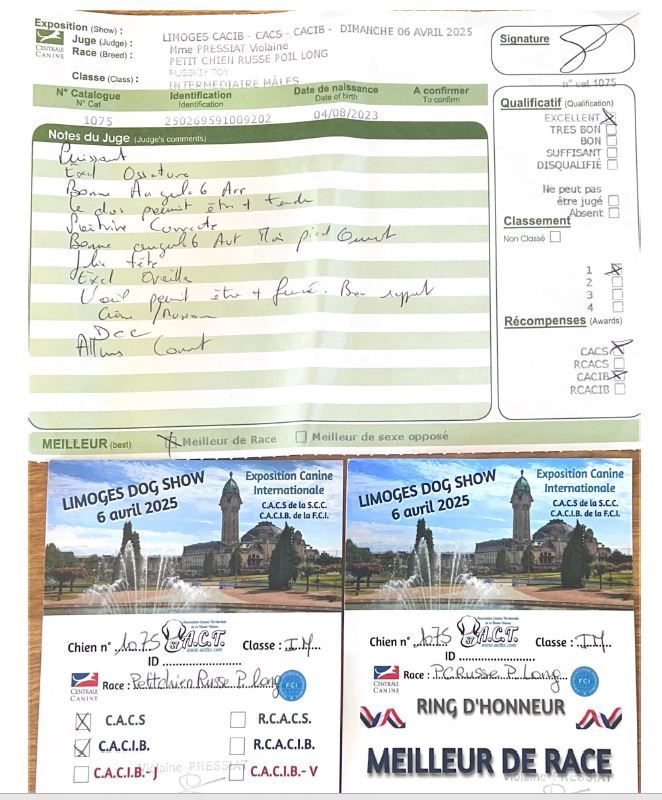 Exposition (Show) : LIMOGES CACIB - CACS - CACIB - DIMANCHE 06 AVRIL 2025
Juge (Judge) : Mme PRESSIAT Violaine
Race (Breed) : PETIT CHIEN RUSSE POIL LONG
RUSSKIY TOY
Classe (Class) : INTERMEDIAIRE MÂLES
CENTRALE
CANINE
Signature
n° cat 1075
N° Catalogue Identification Date de naissance A confirmer
N° Cat Identification Date of birth To confirm
1075 250269591009202 04/08/2023
Notes du Juge (Judge's comments)
Puissant
Excl Ossature
Bonne Angul. Arr
Le dos pourrait être + tendu
Poitrine Correcte
Bonne angul Avt Mais pied Ouvert
Jolie tête
Excl Oreille
L'oeil pourrait être + foncé. Bon rapport
Crâne / Museau
DCC
Allures Court
Qualificatif (Qualification)
EXCELLENT
TRES BON
BON
SUFFISANT
DISQUALIFIÉ
Ne peut pas
être jugé
Absent
Classement
Non Classé
1
2
3
4
Récompenses (Awards)
CACS
RCACS
CACIB
RCACIB
MEILLEUR (best) Meilleur de Race Meilleur de sexe opposé
LIMOGES DOG SHOW
6 avril 2025
Exposition Canine
Internationale
C.A.C.S de la S.C.C.
C.A.C.I.B. de la F.C.I.
Chien n° 1075 A.C.T. Classe : IM
ID
CENTRALE
CANINE
Race : Petit chien Russe P. Long
FCI
C.A.C.S R.C.A.C.S.
C.A.C.I.B. R.C.A.C.I.B.
C.A.C.I.B.- J C.A.C.I.B.- V
Violaine PRESSIAT
LIMOGES DOG SHOW
6 avril 2025
Exposition Canine
Internationale
C.A.C.S de la S.C.C.
C.A.C.I.B. de la F.C.I.
Chien n° 1075 A.C.T. Classe : IM
ID
CENTRALE
CANINE
Race : P.C Russe P. Long
FCI
RING D'HONNEUR
MEILLEUR DE RACE
Violaine PRESSIAT